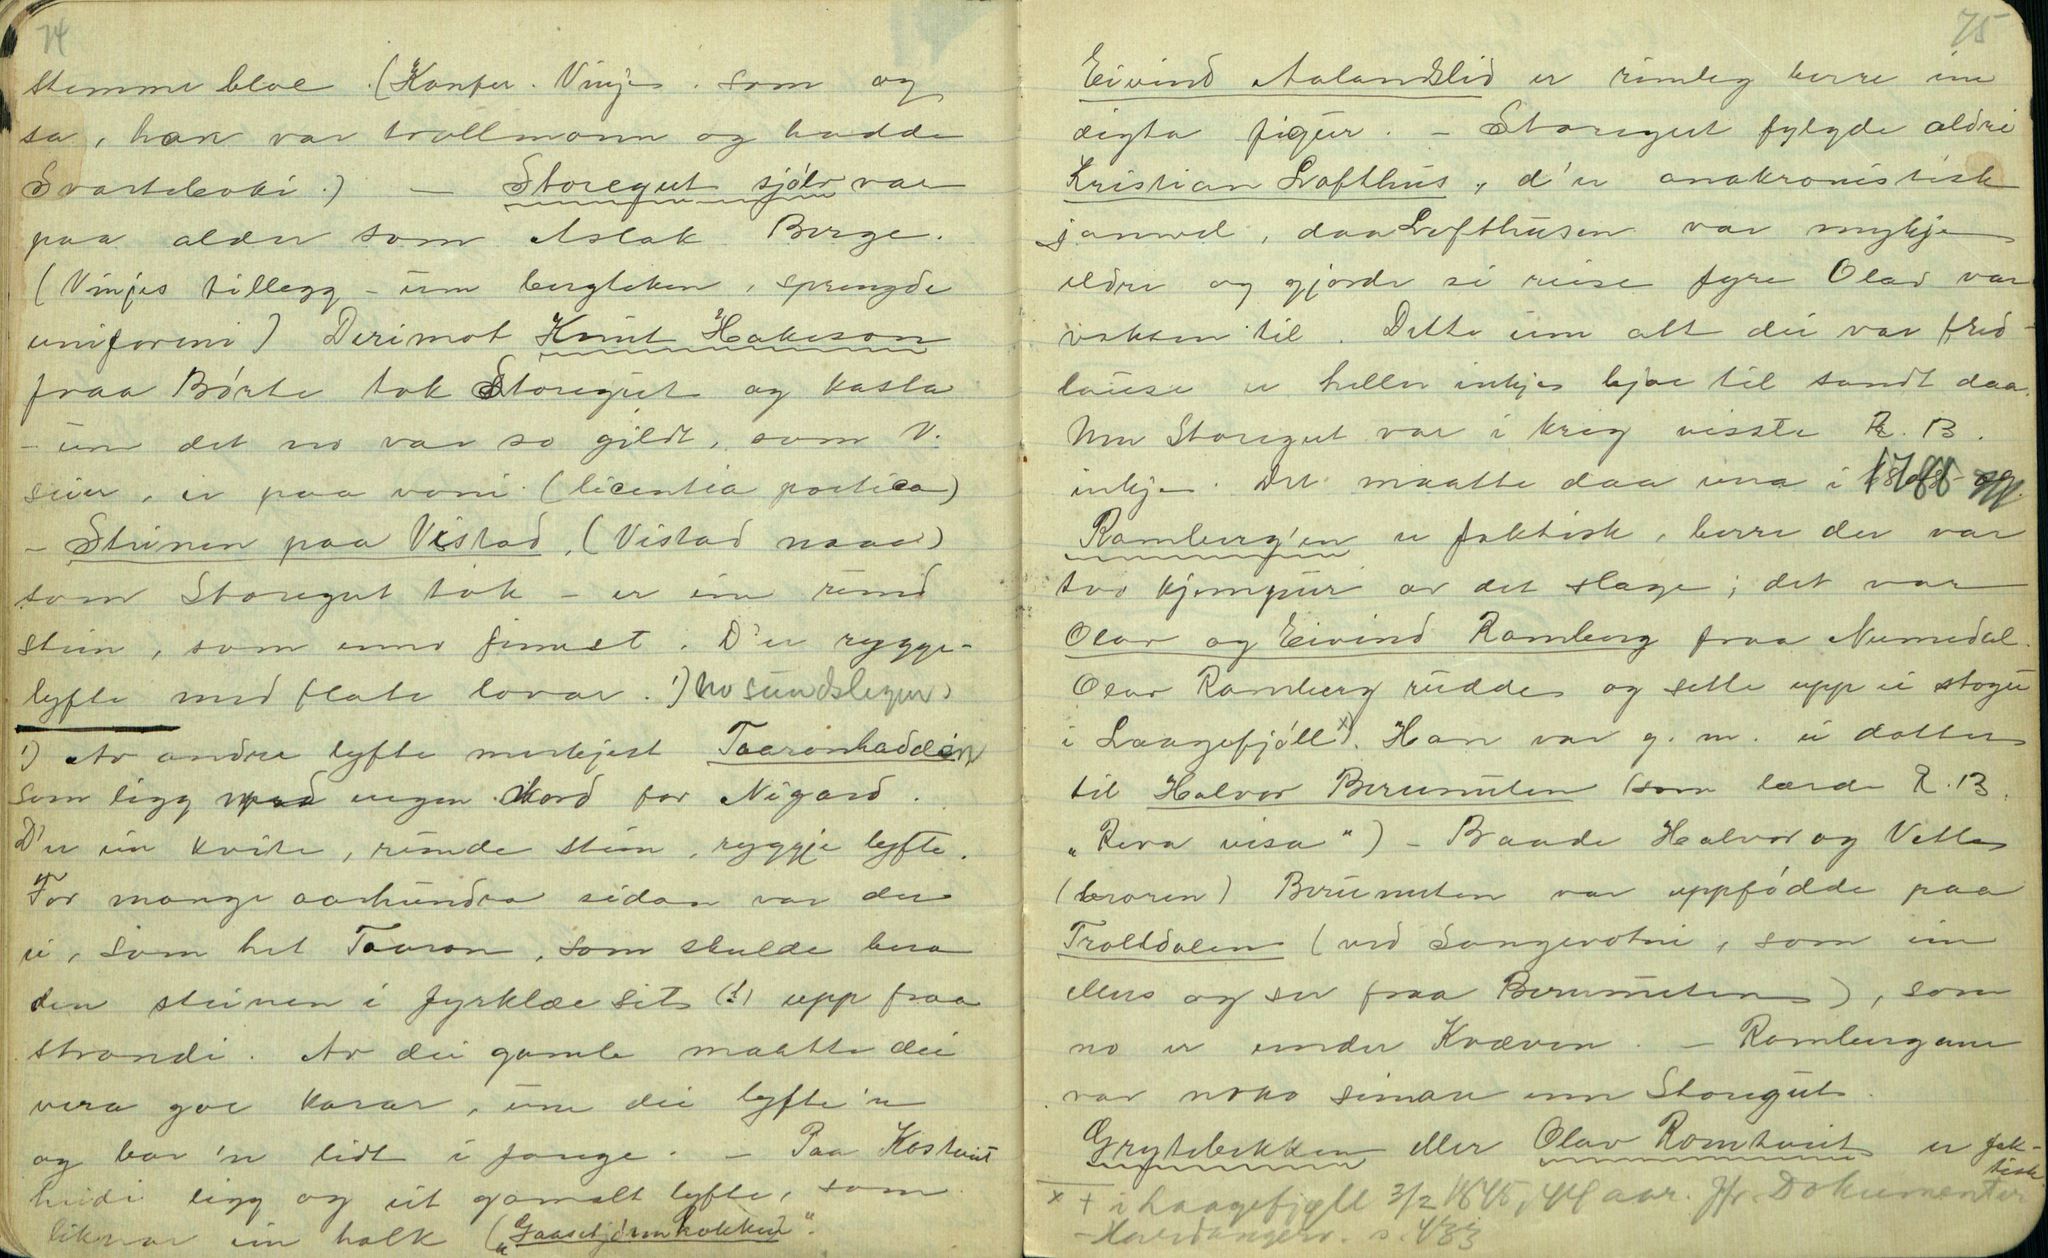 74
stemme bloe. (Konfer. Vinje. som og
sa, han var trollmann og hadde
Svarteboki.) — Storegut sjölv var
paa alder som Aslak Berge.
(Vinjes tillegg - um bergteken, sprengde
uniformi) Derimot Knut Hakeson
fraa Börte tok Storegut og kasta
- um det no var so gildt, som V.
seier, er paa voni (licentia poetica)
- Steinen paa Vistad, (Vistad naaa)
som Storegut tok - er ein rund
stein, som enno finnest. D'er rygge-
lyfte med flate lovar. ¹) no sundslegen
¹) Av andre lyfte merkjest Taaronhadden
som ligg ved vegen Nord for Nigard.
D'er ein kvite, runde stein, ryggje lyfte.
For mange aarhundra sidan var der
ei, som het Taaron, som skulde bera
den steinen i fyrklæe sit (!) upp fraa
strandi. Av dei gamle maatte dei
vera goe karar, um dei lyfte'n
og bar 'n lidt i fange. — Paa Kostveit
heidi ligg og eit gamalt lyfte, som
liknar ein halk („Gaasetjönnhokken“.
75
Eivind Aalandslid er rimleg berre ein
digta figur. - Storegut fylgde aldri
Kristian Lofthus, d'er anakronistisk
janvel, daa Lofthusen var mykje
eldre og gjorde si reise fyre Olav var
vaksen til. Dette um att dei var fred-
lause er heller inkje hjae til sandt daa.
Um Storegut var i krig visste R. B.
inkje. Det maatte daa vera i 1788
Ramberg'en er faktisk, berre der var
tvo kjempur av det slage; det var
Olav og Eivind Ramberg fraa Numedal.
Olav Ramberg rudde og sette upp ei stogu
i Laagefjöll ˣ). Han var g. m. ei dotter
til Halvor Berunuten (som lærde R. B.
„Reva visa“) - Baade Halvor og Vetle
(broren) Berunuten var uppfödde paa
Trolldalen (ved Songevotni, som ein
elles og ser fraa Berunuten), som
no er under Kvæven. - Rambergane
var noko seinare enn Storegut.
Grytebekken eller Olav Romtveit er fak-
tisk
x + i Laagefjell 3/2 1845, 44 aar. Jfr. Dokumenter
- Hardangerv. s. 433